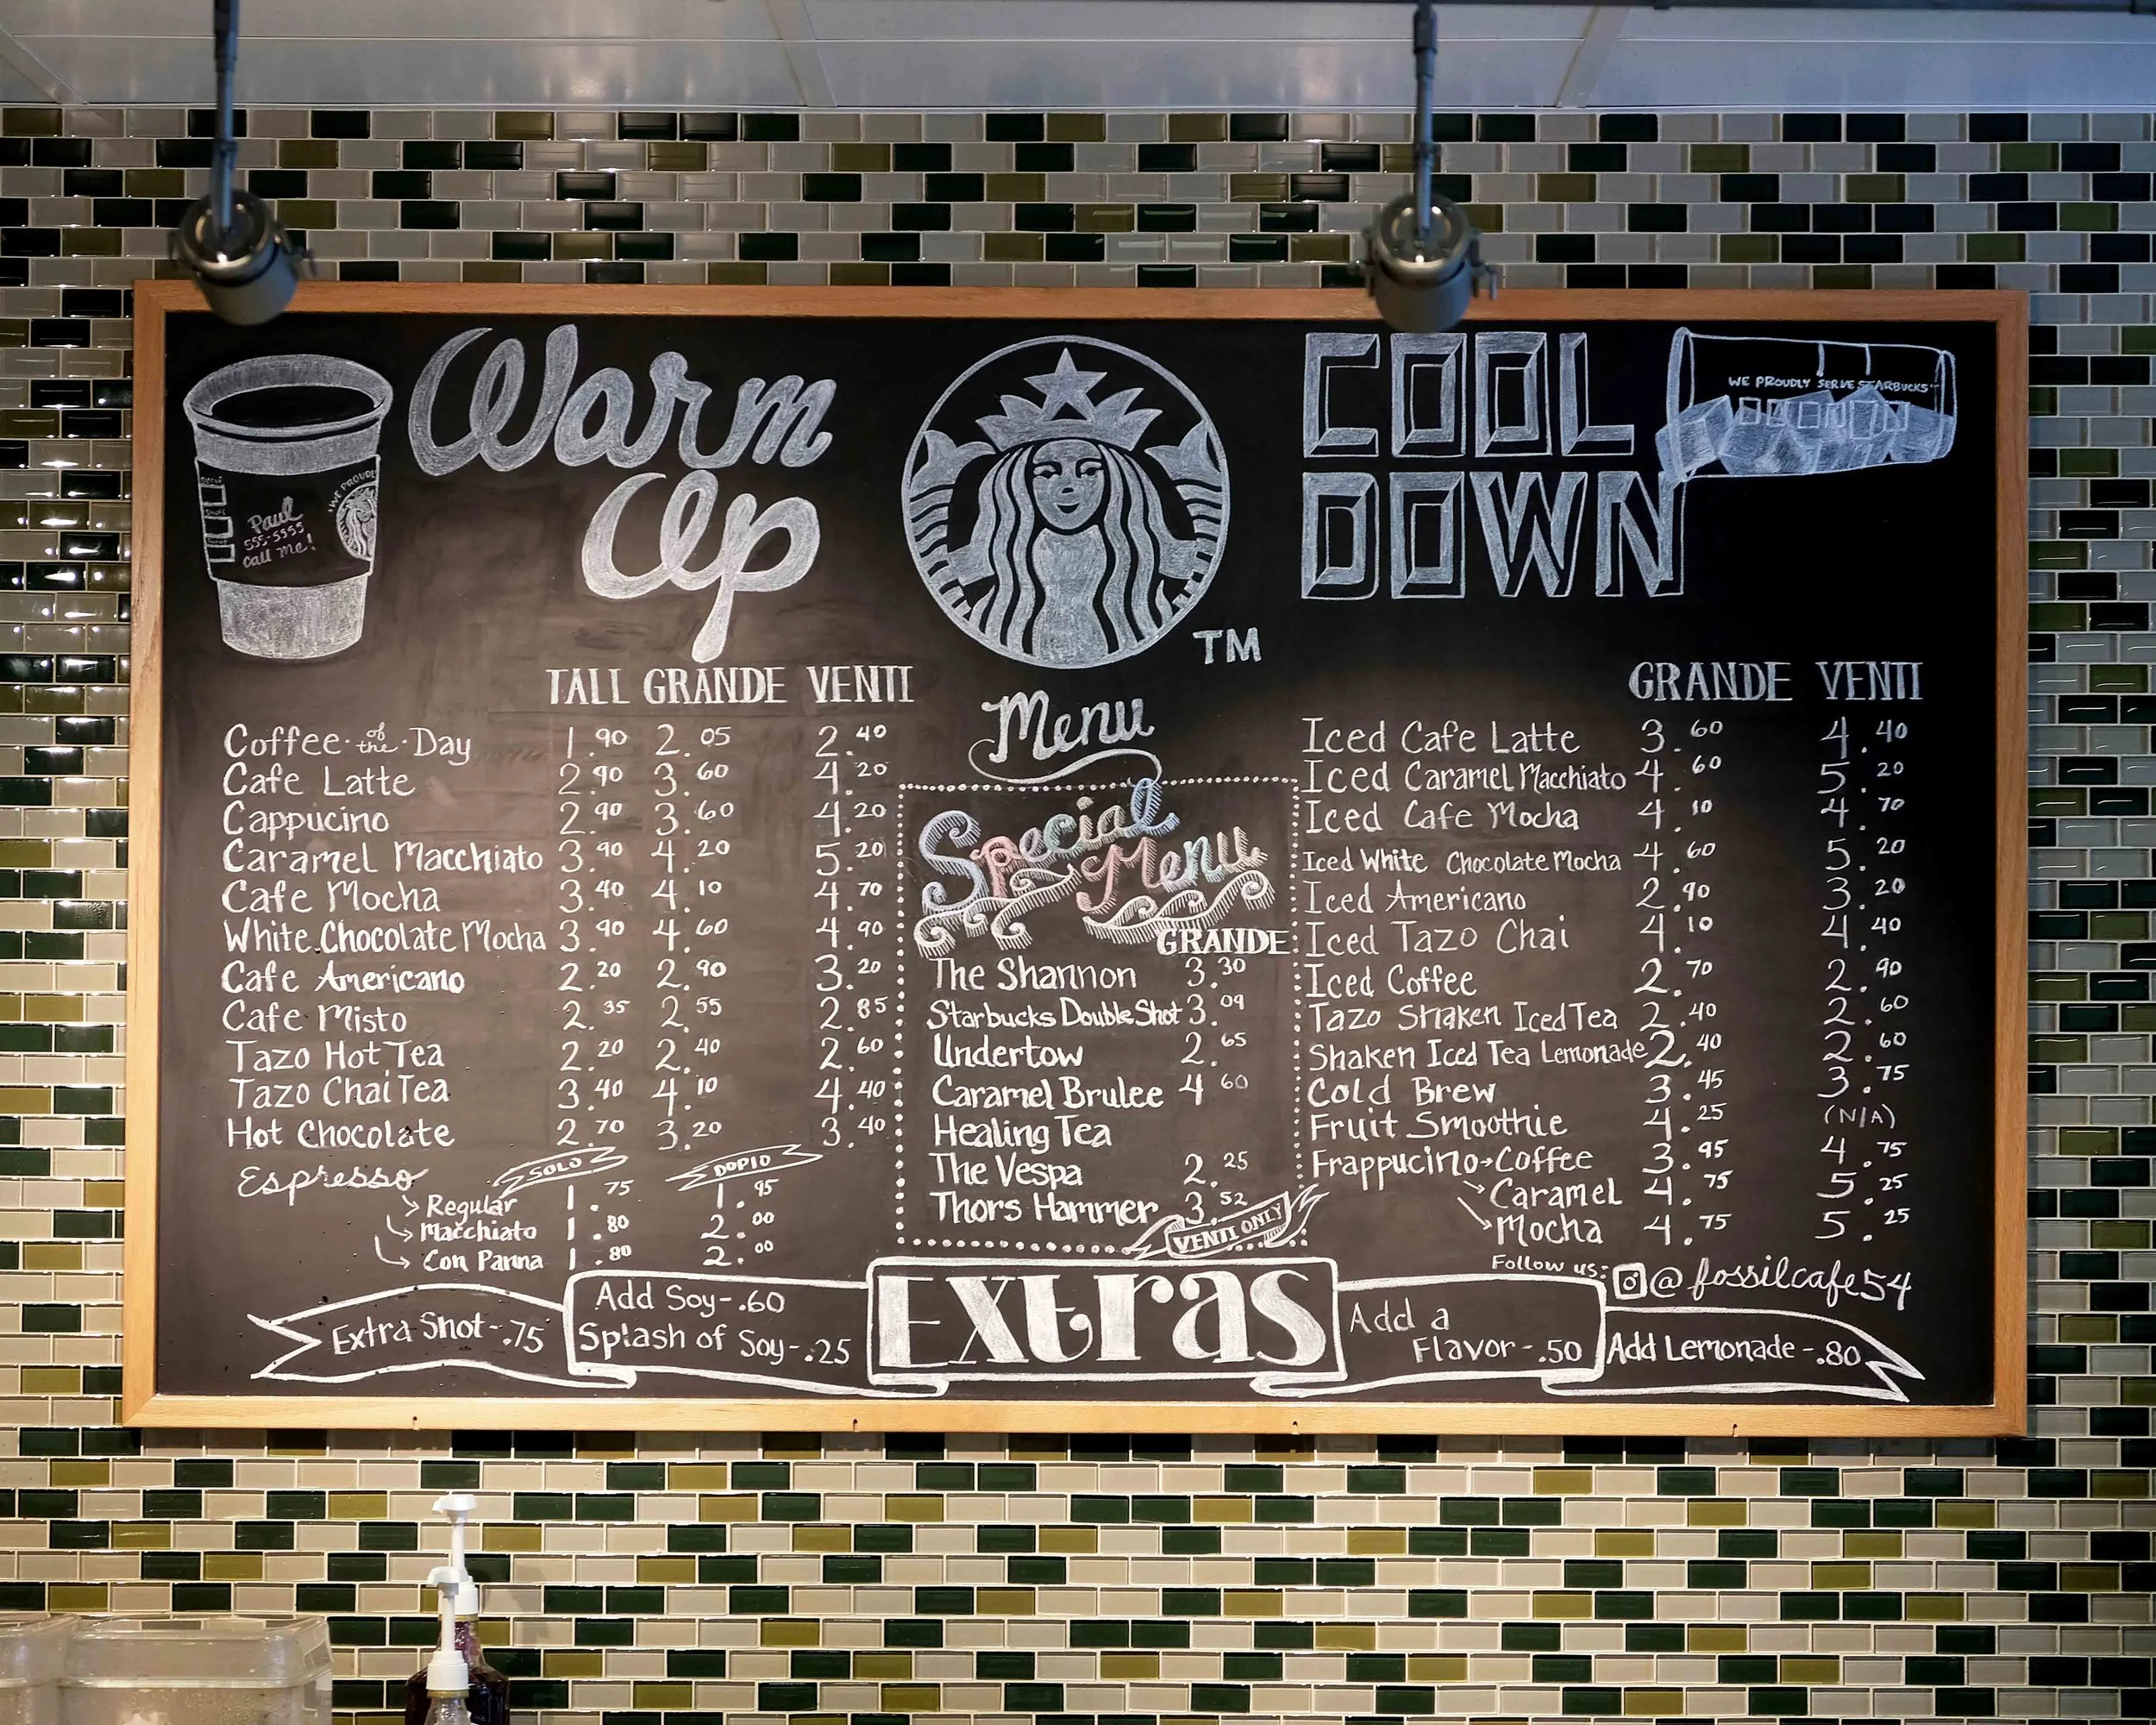 Warm
Up
Paul
555-5555
Call me!
WE PROUDLY
TALL GRANDE VENTI
Coffee of the Day 1.90 2.05 2.40
Cafe Latte 2.90 3.60 4.20
Cappucino 2.90 3.60 4.20
Caramel Macchiato 3.90 4.20 5.20
Cafe Mocha 3.40 4.10 4.70
White Chocolate Mocha 3.90 4.60 4.90
Cafe Americano 2.20 2.90 3.20
Cafe Misto 2.35 2.55 2.85
Tazo Hot Tea 2.20 2.40 2.60
Tazo Chai Tea 3.40 4.10 4.40
Hot Chocolate 2.70 3.20 3.40
Espresso SOLO DOPIO
Regular 1.75 1.95
Macchiato 1.80 2.00
Con Panna 1.80 2.00
TM
Menu
Special
Menu
GRANDE
The Shannon 3.30
Starbucks Double Shot 3.09
Undertow 2.65
Caramel Brulee 4 60
Healing Tea
The Vespa 2.25
Thors Hammer 3.52
VENTI ONLY
COOL
DOWN
WE PROUDLY SERVE STARBUCKS
GRANDE VENTI
Iced Cafe Latte 3.60 4.40
Iced Caramel Macchiato 4.60 5.20
Iced Cafe Mocha 4.10 4.70
Iced White Chocolate Mocha 4.60 5.20
Iced Americano 2.90 3.20
Iced Tazo Chai 4.10 4.40
Iced Coffee 2.70 2.90
Tazo Shaken Iced Tea 2.40 2.60
Shaken Iced Tea Lemonade 2.40 2.60
Cold Brew 3.45 3.75
Fruit Smoothie 4.25 (N/A)
Frappucino→Coffee 3.95 4.75
Caramel 4.75 5.25
Mocha 4.75 5.25
Follow us: @fossilcafe54
Extra Shot-.75
Add Soy-.60
Splash of Soy-.25
Extras
Add a
Flavor-.50
Add Lemonade-.80